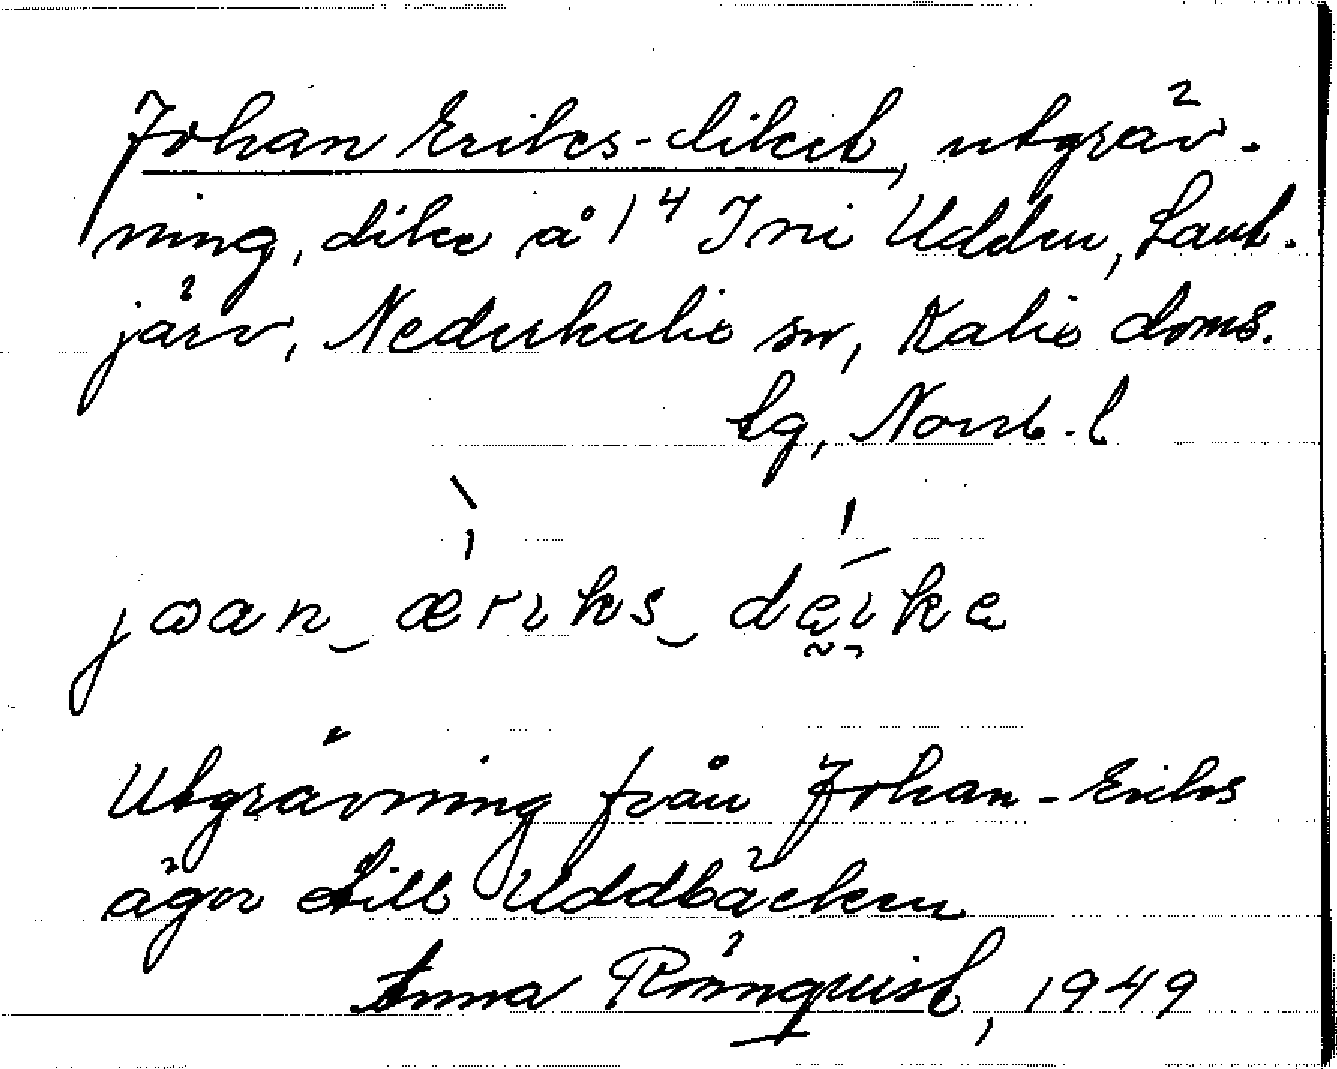 Johan Eriks-diket, utgräv-
ning, dike å 1⁴ Ini Udden, Lant-
järv, Nederkalix sn, Kalix doms.
tg, Norrb. l
joan_æriks_
Utgrävning från Johan-Eriks
ägor till Uddbäcken
Anna Rönnquist, 1949